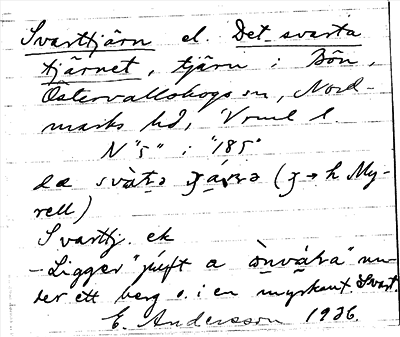 Svarttjärn el. Det svarta
tjärnet, tjärn i Bön,
Östervallskogs sn, Nord-
marks hd, Vrml l.
N "5" i "185"
da svàtə (ʒ → h My-
rell)
Svarttj. ek
- Ligger "juft a un-
der ett berg o. i en myrkant. Svart.
E. Andersson 1936.